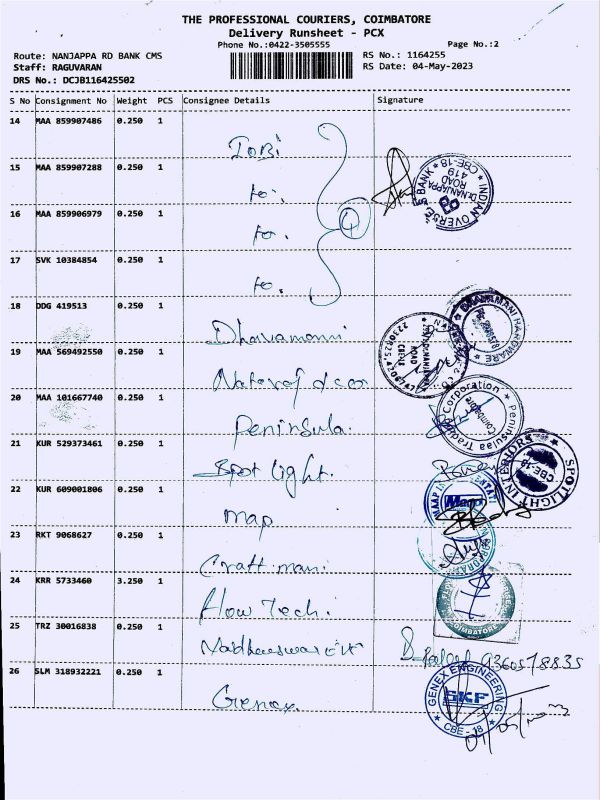 THE PROFESSIONAL COURIERS, COIMBATORE
Delivery Runsheet - PCX
Phone No.:0422-3505555
Page No.:2
Route: NANJAPPA RD BANK CMS
RS No.: 1164255
Staff: RAGUVARAN
RS Date: 04-May-2023
DRS No.: DCJB116425502
S No Consignment No Weight PCS Consignee Details Signature
14 MAA 859907486 0.250 1
IOBi
15 MAA 859907288 0.250 1
to.
16 MAA 859906979 0.250 1
to.
4
17 SVK 10384854 0.250 1
to.
INDIAN OVERSEAS BANK
419
Dr.NANJAPPA
ROAD
CBE-18
18 DDG 419513 0.250 1
Dhavamani
DHAVAMANI HARDWARE
19 MAA 569492550 0.250 1
20 MAA 101667740 0.250 1
Peninsula.
Peninsulaa Trading Corporation
Coimbatore
21 KUR 529373461 0.250 1
Spot light.
SPOTLIGHT INTERIORS
CBE-18
22 KUR 609001806 0.250 1
map
Maap
23 RKT 9068627 0.250 1
Craft man.
24 KRR 5733460 3.250 1
flow Tech.
COIMBATORE
25 TRZ 30016838 0.250 1
9360578835
26 SLM 318932221 0.250 1
Genex.
GENEX ENGINEERING
SKF
CBE - 18